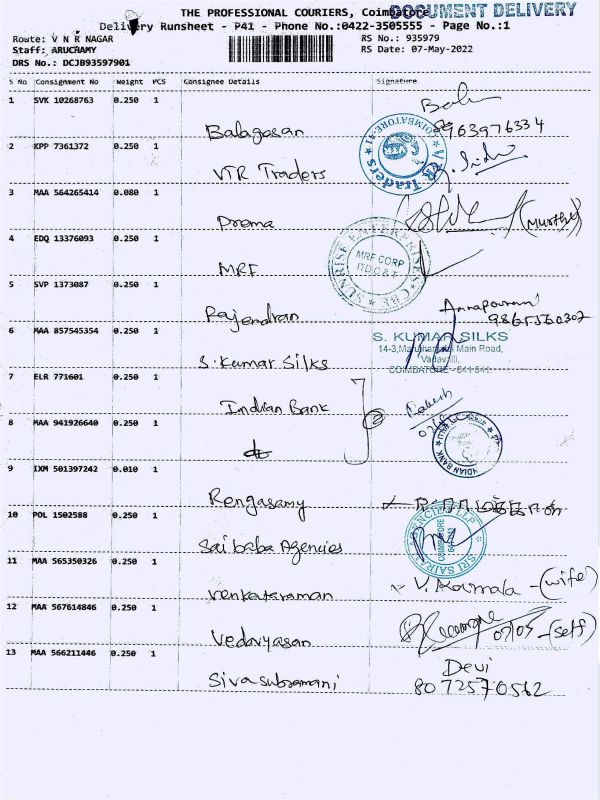 THE PROFESSIONAL COURIERS, Coimbatore
DOCUMENT DELIVERY
Delivery Runsheet - P41 - Phone No.:0422-3505555 - Page No.:1
Route: V N R NAGAR
RS No.: 935979
Staff: ARUCHAMY
RS Date: 07-May-2022
DRS No.: DCJB93597901
S No Consignment No Weight PCS Consignee Details Signature
1 SVK 10268763 0.250 1 Balagasan
963976334
2 KPP 7361372 0.250 1 VTR Traders
COIMBATORE-41 VTR Traders
3 MAA 564265414 0.080 1 Prema (Murthy)
4 EDQ 13376093 0.250 1 MRF
SUNRISE ENTERPRISES CBE
MRF CORP
ITD C & T
5 SVP 1373087 0.250 1 Rajendran
6 MAA 857545354 0.250 1 S. Kumar Silks
S. KUMAR SILKS
Main Road,
Vadavalli,
COIMBATORE - 641 041.
7 ELR 771601 0.250 1 Indian Bank
8 MAA 941926640 0.250 1 do
INDIAN BANK
9 IXM 501397242 0.010 1 Rengasamy
10 POL 1502588 0.250 1 Sai baba Agencies
COIMBATORE
11 MAA 565350326 0.250 1 Venkataraman V. Kormala - (wife)
12 MAA 567614846 0.250 1 Vedavyasan 07/05 - (self)
13 MAA 566211446 0.250 1 Sivasubramani Devi
8072570562